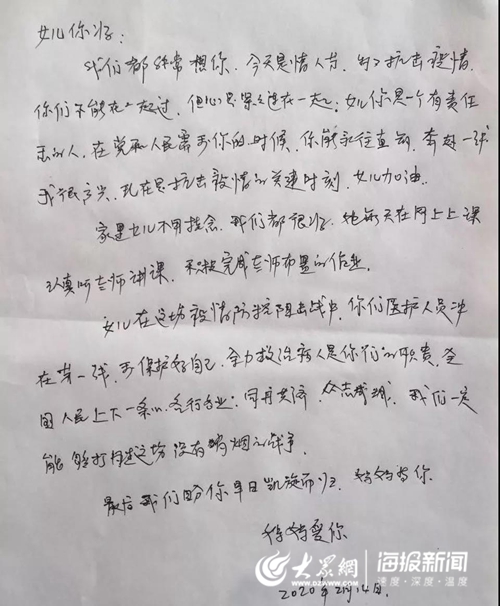 女儿你好：
我们都非常想你，今天是情人节，为了抗击疫情
你们不能在一起过，但心总是连在一起，女儿你是一个有责任
的人，在党和人民需要你的时候，你能勇往直前，奔赴一线
我很高兴，现在是抗击疫情的关键时刻，女儿加油。
家里女儿不用挂念，我们都很好，她每天在网上上课
认真听老师讲课，积极完成老师布置的作业。
女儿在这场疫情防控阻击战中，你们医护人员冲
在第一线，要保护好自己，全力救治病人是你们的职责，全
国人民上下一条心，各行各业，同舟共济，众志成城，我们一定
能够打赢这场没有硝烟的战争。
最后我们盼你早日凯旋而归，妈妈等你
妈妈爱你
2020年2月14日.
大众网 海报新闻
WWW.DZWWW.COM 速度·深度·温度